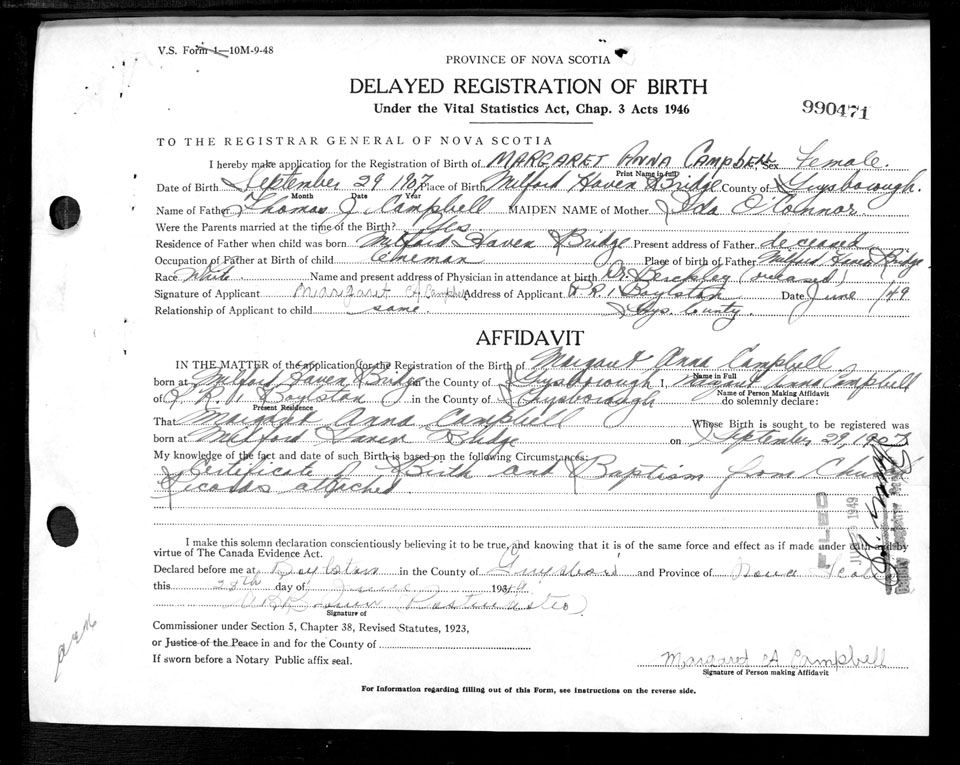 V.S. Form 1—10M-9-48
PROVINCE OF NOVA SCOTIA
DELAYED REGISTRATION OF BIRTH
Under the Vital Statistics Act, Chap. 3 Acts 1946
990471
TO THE REGISTRAR GENERAL OF NOVA SCOTIA
I hereby make application for the Registration of Birth of MARGARET ANNA CAMPBELL Sex Female.
Print Name in full
Date of Birth September 29 1907 Place of Birth Milford Haven Bridge County of Guysborough.
Month Date Year
Name of Father Thomas J. Campbell MAIDEN NAME of Mother Ida O'Connor.
Were the Parents married at the time of the Birth? Yes.
Residence of Father when child was born Milford Haven Bridge Present address of Father deceased
Occupation of Father at Birth of child Place of birth of Father Milford Haven Bridge.
Race White Name and present address of Physician in attendance at birth Dr. (deceased)
Signature of Applicant Margaret A Campbell Address of Applicant R.R. 1 Boylston Date June /49
Relationship of Applicant to child same. Guys. County.
AFFIDAVIT
IN THE MATTER of the application for the Registration of the Birth of Margaret Anna Campbell
Name in Full
born at Milford Haven Bridge in the County of Guysborough I, Margaret Anna Campbell
Name of Person Making Affidavit
of R R 1 Boylston in the County of Guysborough do solemnly declare:
Present Residence
That Margaret Anna Campbell Whose Birth is sought to be registered was
born at Milford Haven Bridge on September 29, 1907
My knowledge of the fact and date of such Birth is based on the following Circumstances:
Certificate of Birth and Baptism from Church
Records attached.
FILED
1949
I make this solemn declaration conscientiously believing it to be true, and knowing that it is of the same force and effect as if made under oath and by
virtue of The Canada Evidence Act.
Declared before me at Boylston in the County of Guysboro and Province of Nova Scotia
this 28th day of June 1949
(Postmaster)
Signature of
Commissioner under Section 5, Chapter 38, Revised Statutes, 1923,
or Justice of the Peace in and for the County of
If sworn before a Notary Public affix seal.
Margaret A Campbell
Signature of Person making Affidavit
For Information regarding filling out of this Form, see instructions on the reverse side.